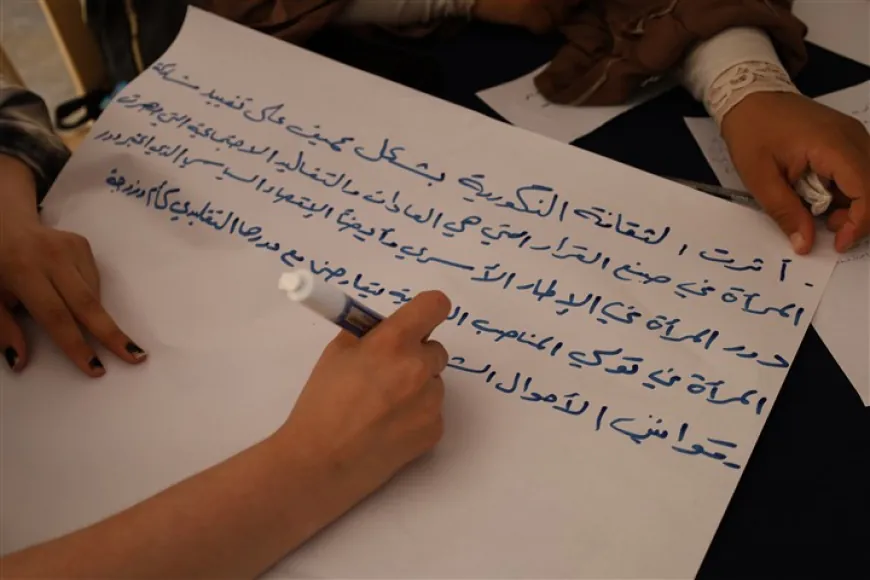 . أثرت الثقافة الذكورية بشكل عميق على تقييد مشاركة
المرأة في صنع القرار التي هي العادات والتقاليد الاجتماعية التي حصرت
دور المرأة في الإطار الأسري مأيضاً الإقتصاد السياسي الذي اعتبر دور
المرأة في تولي المناصب يتعارض مع دورها التقليدي كأم وزوجة
- قوانين الأحوال